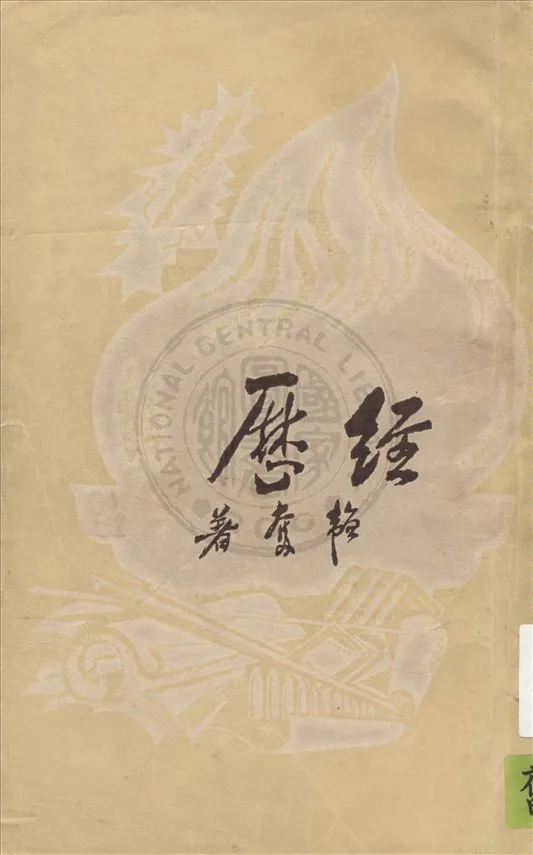 經歷
韜奮著
NATIONAL CENTRAL